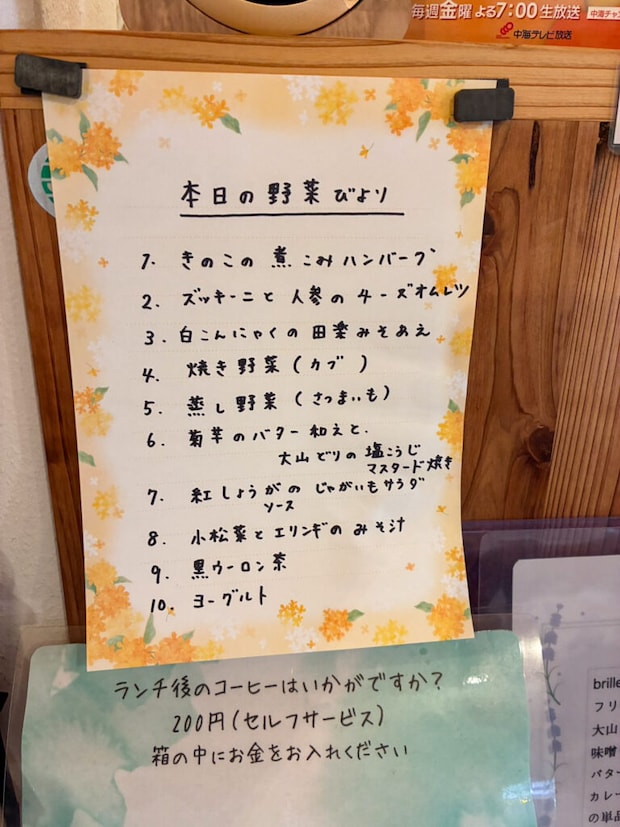 毎週金曜よる7:00生放送
中海チャン
中海テレビ放送
本日の野菜びより
1. きのこの煮こみハンバーグ
2. ズッキーニと人参のチーズオムレツ
3. 白こんにゃくの田楽みそあえ
4. 焼き野菜(カブ)
5. 蒸し野菜(さつまいも)
6. 菊芋のバター和えと.
大山どりの塩こうじ
マスタード焼き
7. 紅しょうがのじゃがいもサラダ
ソース
8. 小松菜とエリンギのみそ汁
9. 黒ウーロン茶
10. ヨーグルト
ランチ後のコーヒーはいかがですか?
200円(セルフサービス)
箱の中にお金をお入れください
brille
フリ
大山
味噌
バター
カレー
の単品